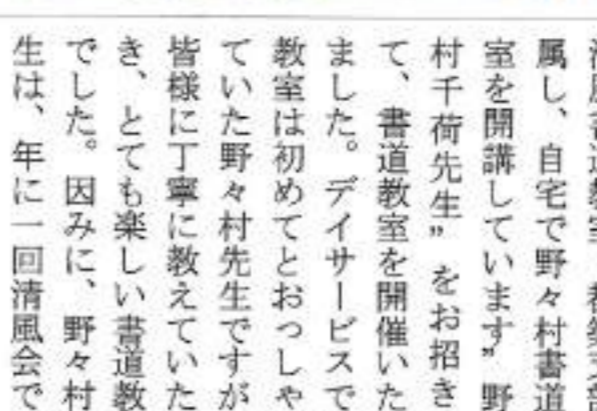 属し、自宅で野々村書道
室を開講しています”野
村千荷先生”をお招き
て、書道教室を開催いた
ました。デイサービスで
教室は初めてとおっしゃ
ていた野々村先生ですが
皆様に丁寧に教えていた
き、とても楽しい書道教
でした。因みに、野々村
生は、年に一回清風会で